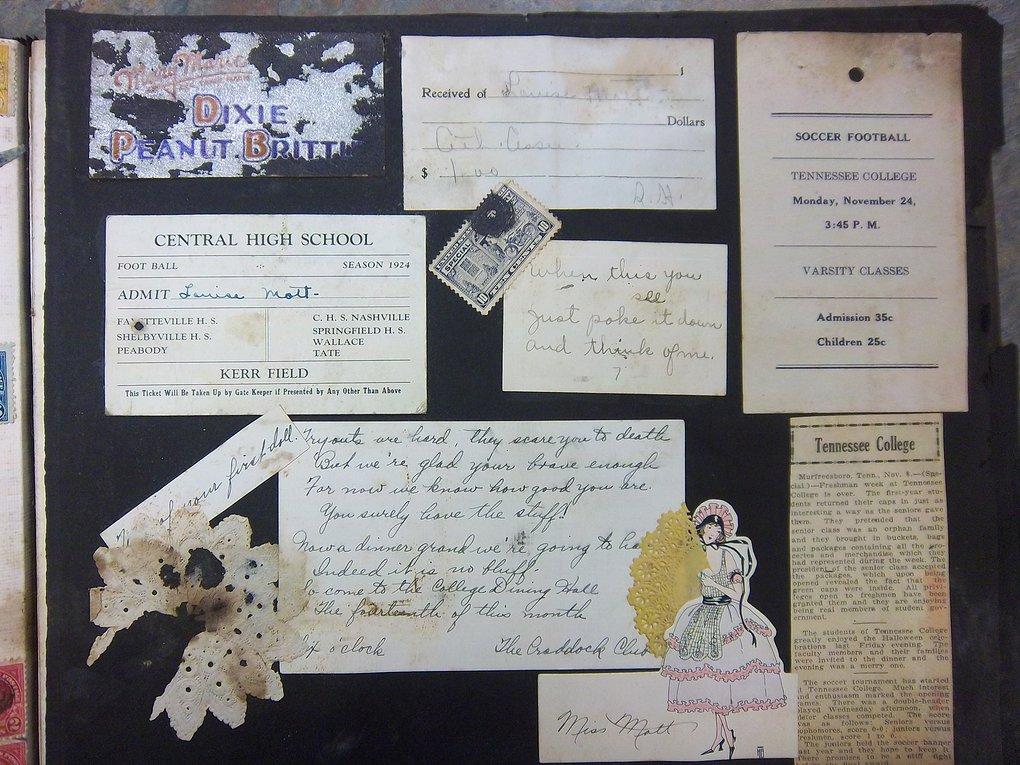 Mary Marie
DIXIE
PEANUT BRITTL
$
Received of Louise Mott
Dollars
$ 1.00
SOCCER FOOTBALL
TENNESSEE COLLEGE
Monday, November 24,
3:45 P. M.
VARSITY CLASSES
Admission 35c
Children 25c
CENTRAL HIGH SCHOOL
FOOT BALL SEASON 1924
ADMIT Louise Mott
FAYETTEVILLE H. S.
SHELBYVILLE H. S.
PEABODY
C. H. S. NASHVILLE
SPRINGFIELD H. S.
WALLACE
TATE
KERR FIELD
This Ticket Will Be Taken Up by Gate Keeper if Presented by Any Other Than Above
SPECIAL
10
10
When this you
see
Just poke it down
and think of me.
?
of your first doll.
Tryouts are hard, they scare you to death
But we're glad your brave enough
For now we know how good you are.
You surely have the stuff!
Now a dinner grand we're going to ha
Indeed it is no bluff
So come to the College Dining Hall
The fourteenth of this month
o'clock The Craddock Club
Miss Mott
Tennessee College
Murfreesboro, Tenn., Nov. 8.—(Spe-
cial.)—Freshman week at Tennessee
College is over. The first-year stu-
dents returned their caps in just as
interesting a way as the seniors gave
them. They pretended that the
senior class was an orphan family
and they brought in buckets, bags
and packages containing all the gro-
ceries and merchandise which they
had represented during the week. The
president of the senior class accepted
the packages, which upon being
opened revealed the fact that the
green caps were inside. All privi-
leges open to freshmen have been
granted them and they are enjoying
being real members of student gov-
ernment.
The students of Tennessee College
greatly enjoyed the Halloween cele-
brations last Friday evening. The
faculty members and their families
were invited to the dinner and the
evening was a merry one.
The soccer tournament has started
at Tennessee College. Much interest
and enthusiasm marked the opening
games. There was a double-header
played Wednesday afternoon, when
sister classes competed. The score
was as follows: Seniors versus
sophomores, score 6-0; juniors versus
freshmen, score 1 to 0.
The juniors held the soccer banner
last year and they hope to keep it.
There promises to be a stiff fight